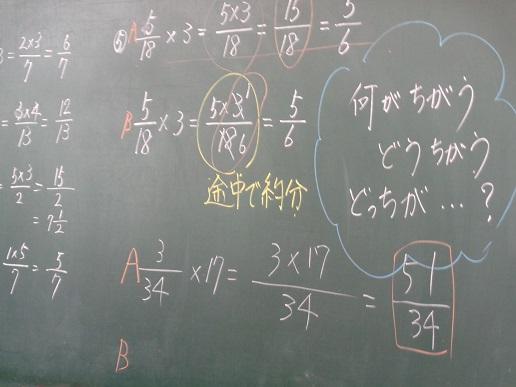 3 = 2×3/7 = 6/7
= 3×4/13 = 12/13
= 5×3/2 = 15/2
= 7 1/2
1×5/7 = 5/7
⑥ A 5/18 × 3 = 5×3/18 = 15/18 = 5/6
B 5/18 × 3 = 5×3 1/18 6 = 5/6
途中で約分
何がちがう
どうちがう
どっちが…?
A 3/34 × 17 = 3×17/34 = 51/34
B